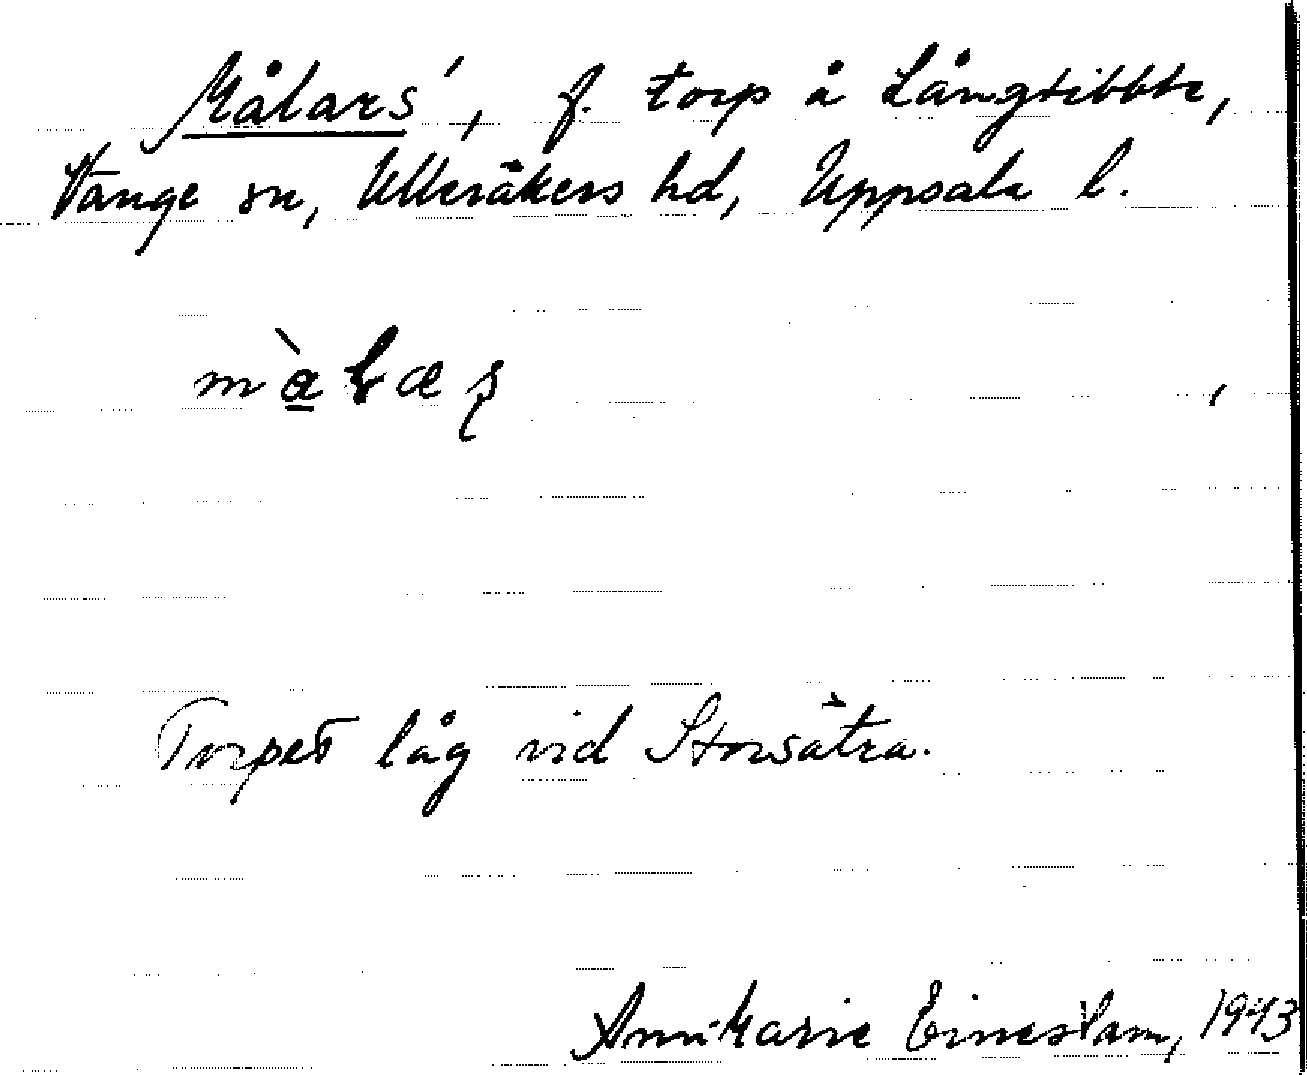 Målars', f. torp å Långtibble,
Vänge sn, Ulleråkers hd, Uppsala l.
Torpet låg vid Storsätra.
Ann-Marie 1943